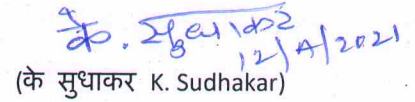 के. सुधाकर
12/4/2021
(के सुधाकर K. Sudhakar)